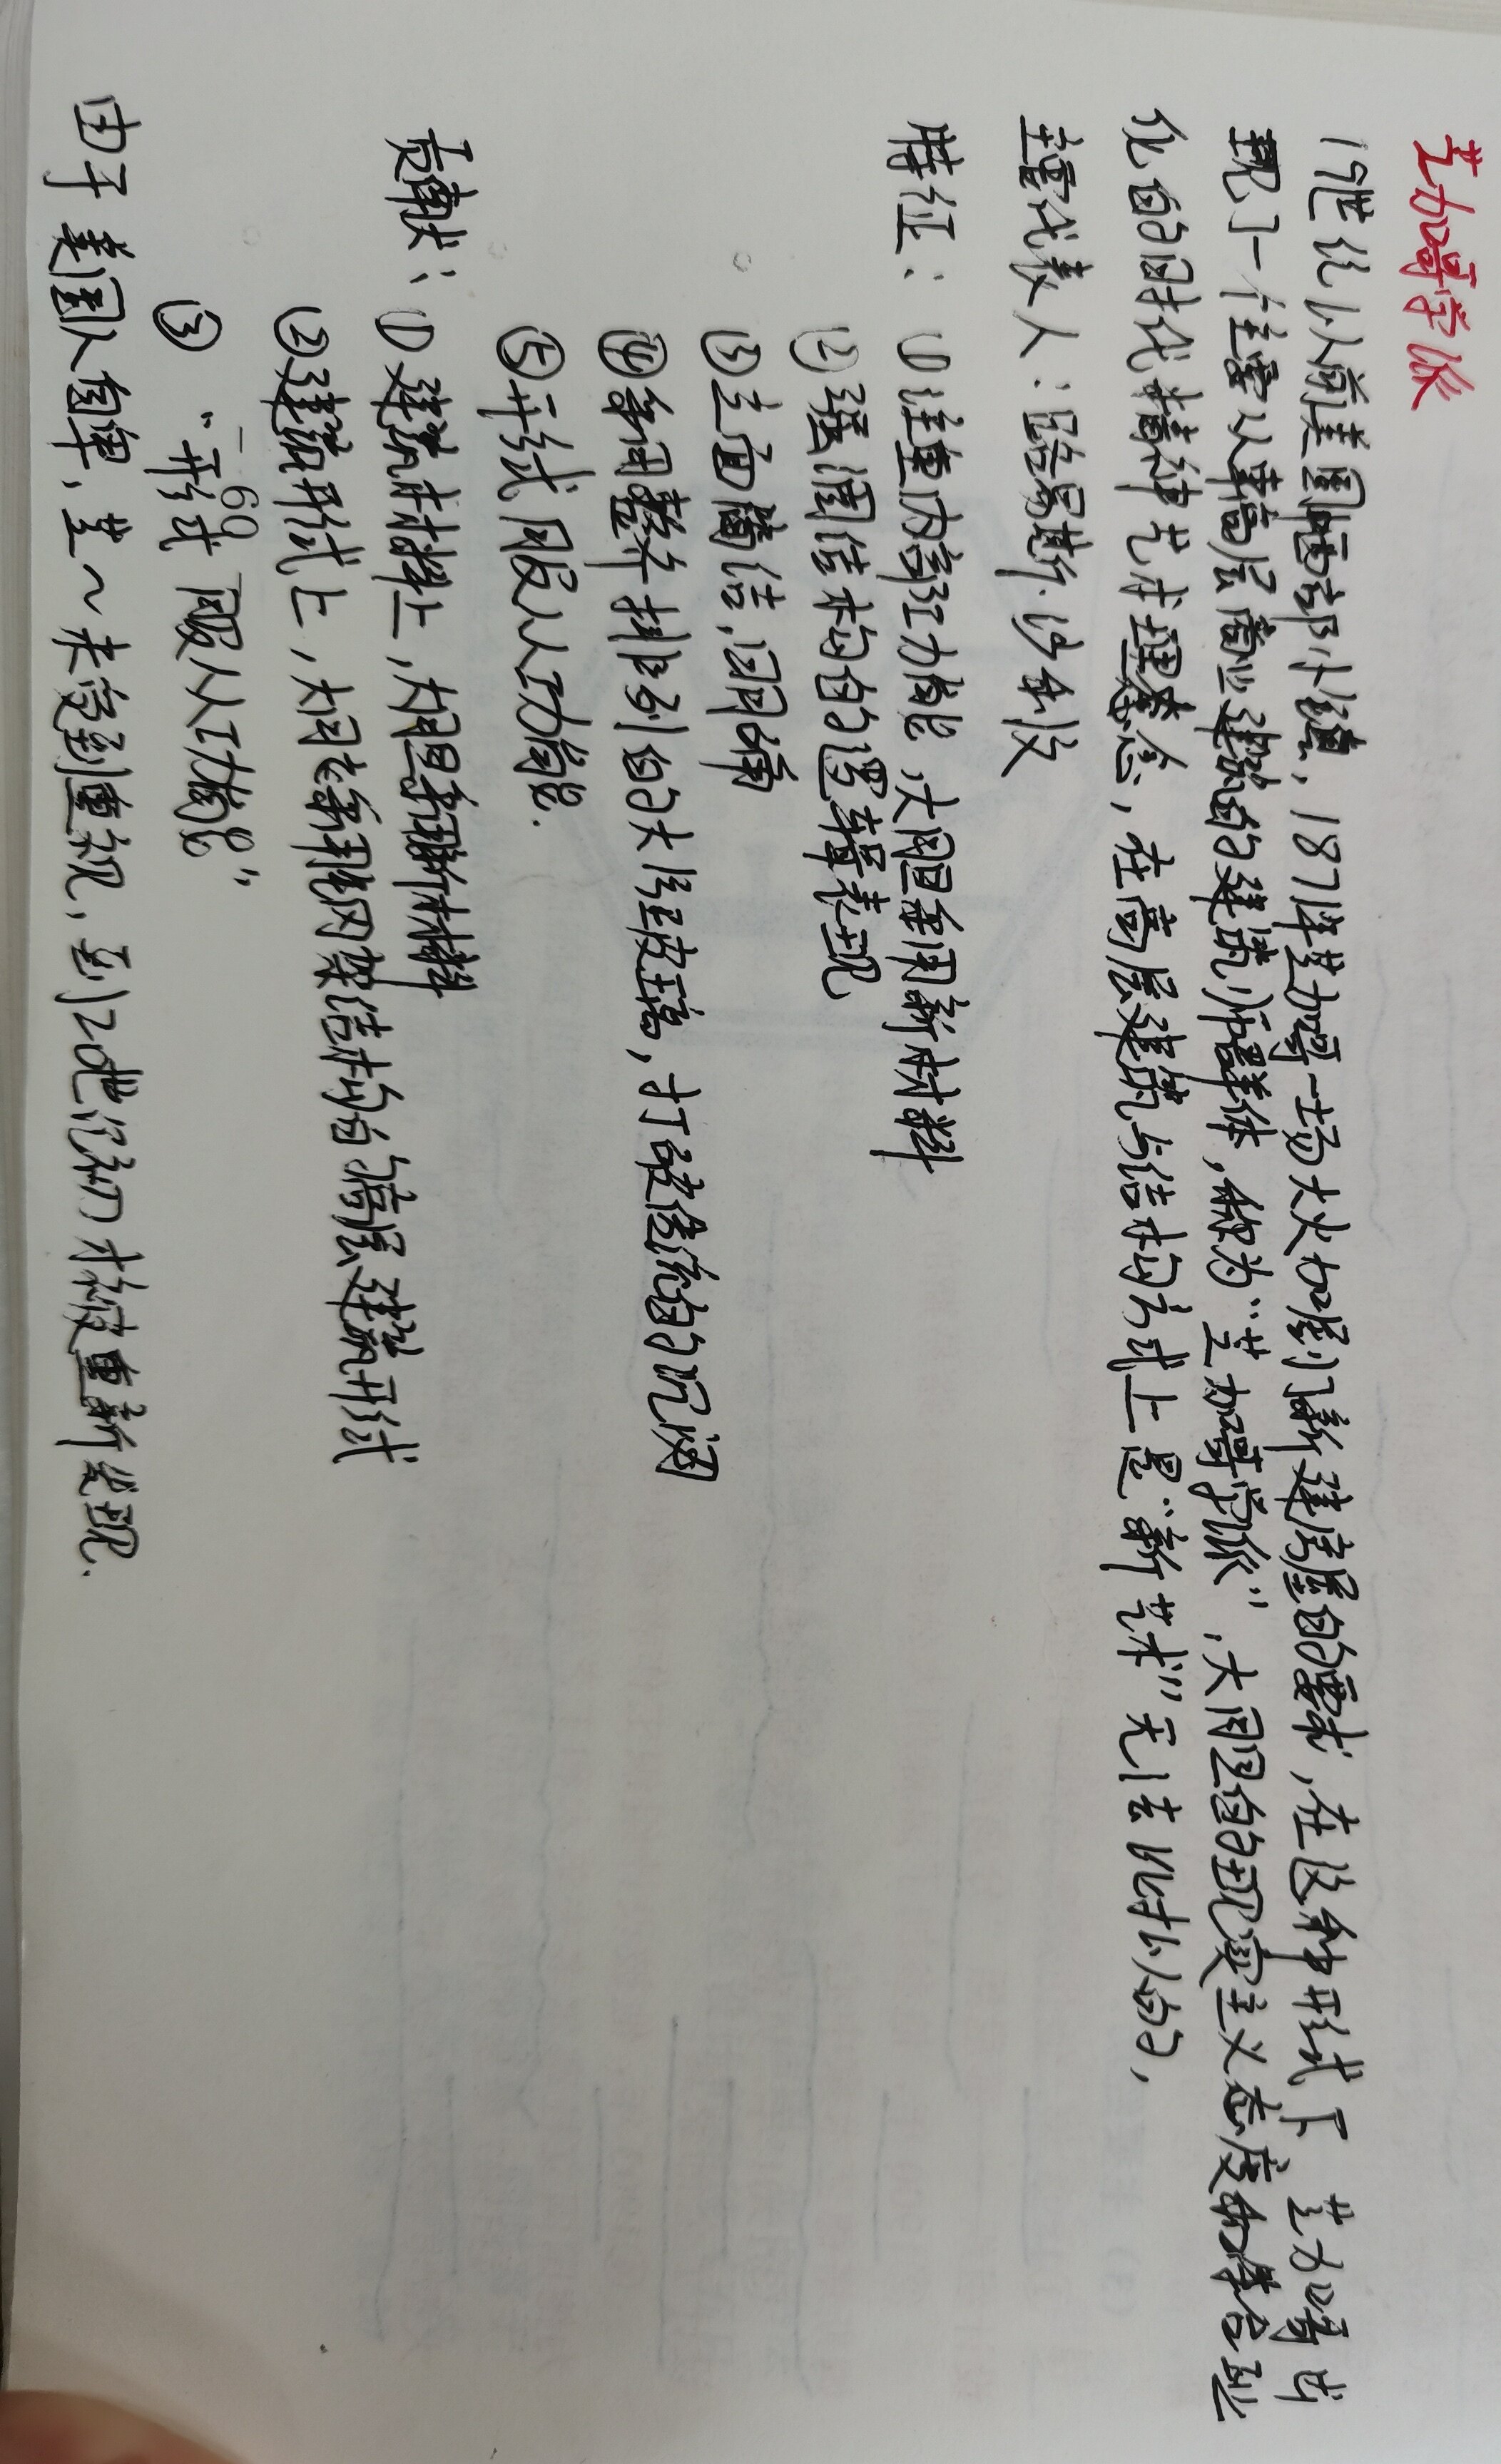 芝加哥学派
19世纪以前美国西部小镇，1871年芝加哥一场大火加剧了新建房屋的需求，在这种形式下 芝加哥出
现了一住需从事高层商业建筑的建筑师群体，称为“芝加哥学派”，大胆的现实主义态度和革合理
化的时代精神艺术理念，在高层建筑与结构方式上是“新艺术”无法比拟的，
主要代表人：路易斯·沙利文
特征：①注重内部功能，大胆利用新材料
②强调结构的逻辑表现
③立面简洁，明晰
④采用整齐排列的大片玻璃，打破传统的沉闷
⑤形式服从功能．
贡献：①建筑材料上，大胆采用新材料
②建筑形式上，大胆采用钢架结构的高层建筑形式
③“形式服从功能”
由于美国人自卑，芝~未受到重视，到20世纪初才被重新发现．
69